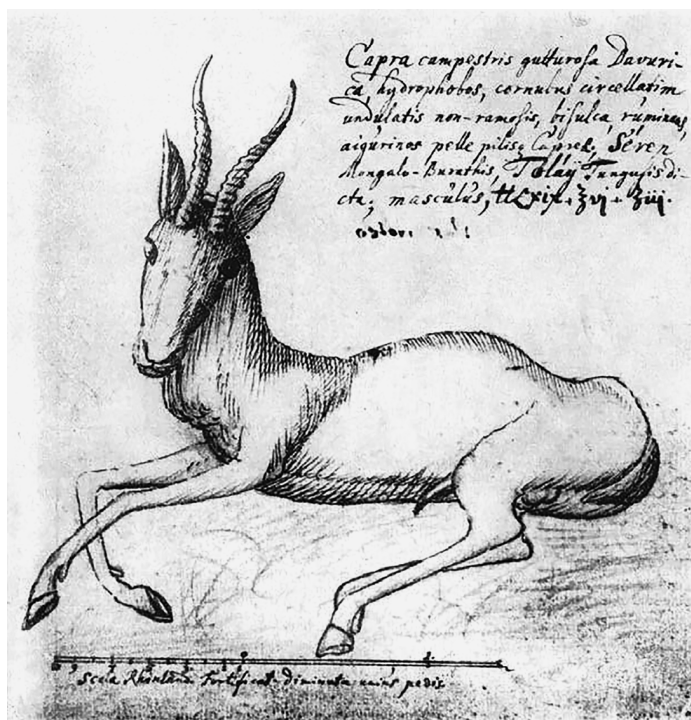 Capra campestris gutturosa Davuri-
ca, hydrophobos, cornubus circellatim
undulatis non-ramosis, bisulca ruminans,
pelle pilisq Capreæ, Seren
Mongalo-Burathis, Toláÿ Tungusis di-
cta, masculus,
Scala Rhinland. Fortificat. diminuta unius pedis